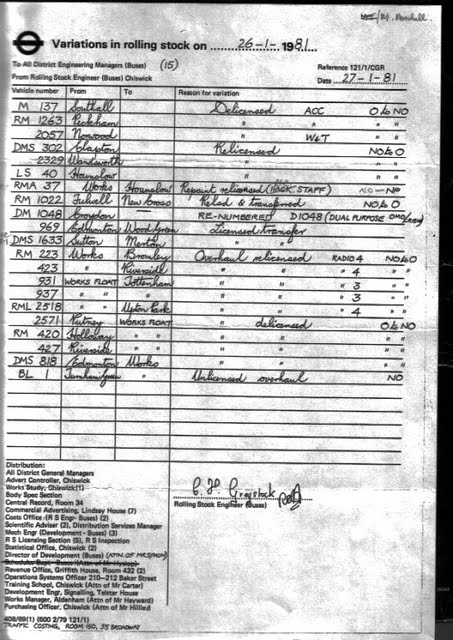 Mr. Marshall
Variations in rolling stock on 26-1-1981.
To All District Engineering Managers (Buses) (15) Reference 121/1/CGR
From Rolling Stock Engineer (Buses) Chiswick Date 27-1-81
Vehicle number From To Reason for variation
M 137 Southall Delicensed ACC O to NO
RM 1263 Peckham " " "
2057 Norwood " W&T " "
DMS 302 Clapton Relicensed NO to O
2329 Wandsworth " " "
LS 40 Hounslow " " "
RMA 37 Works Hounslow Repaint relicensed (HACK. STAFF) NO-NO
RM 1022 Fulwell New Cross Relcd & transferred NO to O
DM 1048 Croydon — RE-NUMBERED D1048 (DUAL PURPOSE OMO/CREW)
969 Edmonton Wood Green Licensed transfer
DMS 1633 Sutton Merton " "
RM 223 Works Bromley Overhaul relicensed RADIO 4 NO to O
423 " Riverside " " " 4 " "
931 WORKS FLOAT Tottenham " " " 3 " "
937 " " " " " " 3 " "
RML 2518 " " Upton Park " " " 4 " "
2571 Putney WORKS FLOAT " delicensed O to NO
RM 420 Holloway " " " " " "
427 Riverside " " " " " "
DMS 818 Edmonton Works " " " "
BL 1 Turnham Green " Unlicensed overhaul NO
Distribution:
All District General Managers
Advert Controller, Chiswick
Works Study, Chiswick (1)
Body Spec Section
Central Record, Room 34
Commercial Advertising, Lindsay House (7)
Costs Office (R S Engr- Buses) (2)
Scientific Adviser (2), Distribution Services Manager
Mech Engr (Development - Buses) (3)
R S Licensing Section (5), R S Inspection
Statistical Office, Chiswick (2)
Director of Development (Buses) (ATTN. OF MRS/MON)
Schedules Supt - Buses (Attn of Mr Hyslop)
Revenue Office, Griffith House, Room 432 (2)
Operations Systems Officer 210-212 Baker Street
Training School, Chiswick (Attn of Mr Carter)
Development Engr, Signalling, Telstar House
Works Manager, Aldenham (Attn of Mr Hayward)
Purchasing Officer, Chiswick (Attn of Mr Hillied
408/89(1) (800 2/79 121/1)
TRAFFIC COSTING, ROOM 150, 55 BROADWAY
C. H Greystock
Rolling Stock Engineer (Buses)